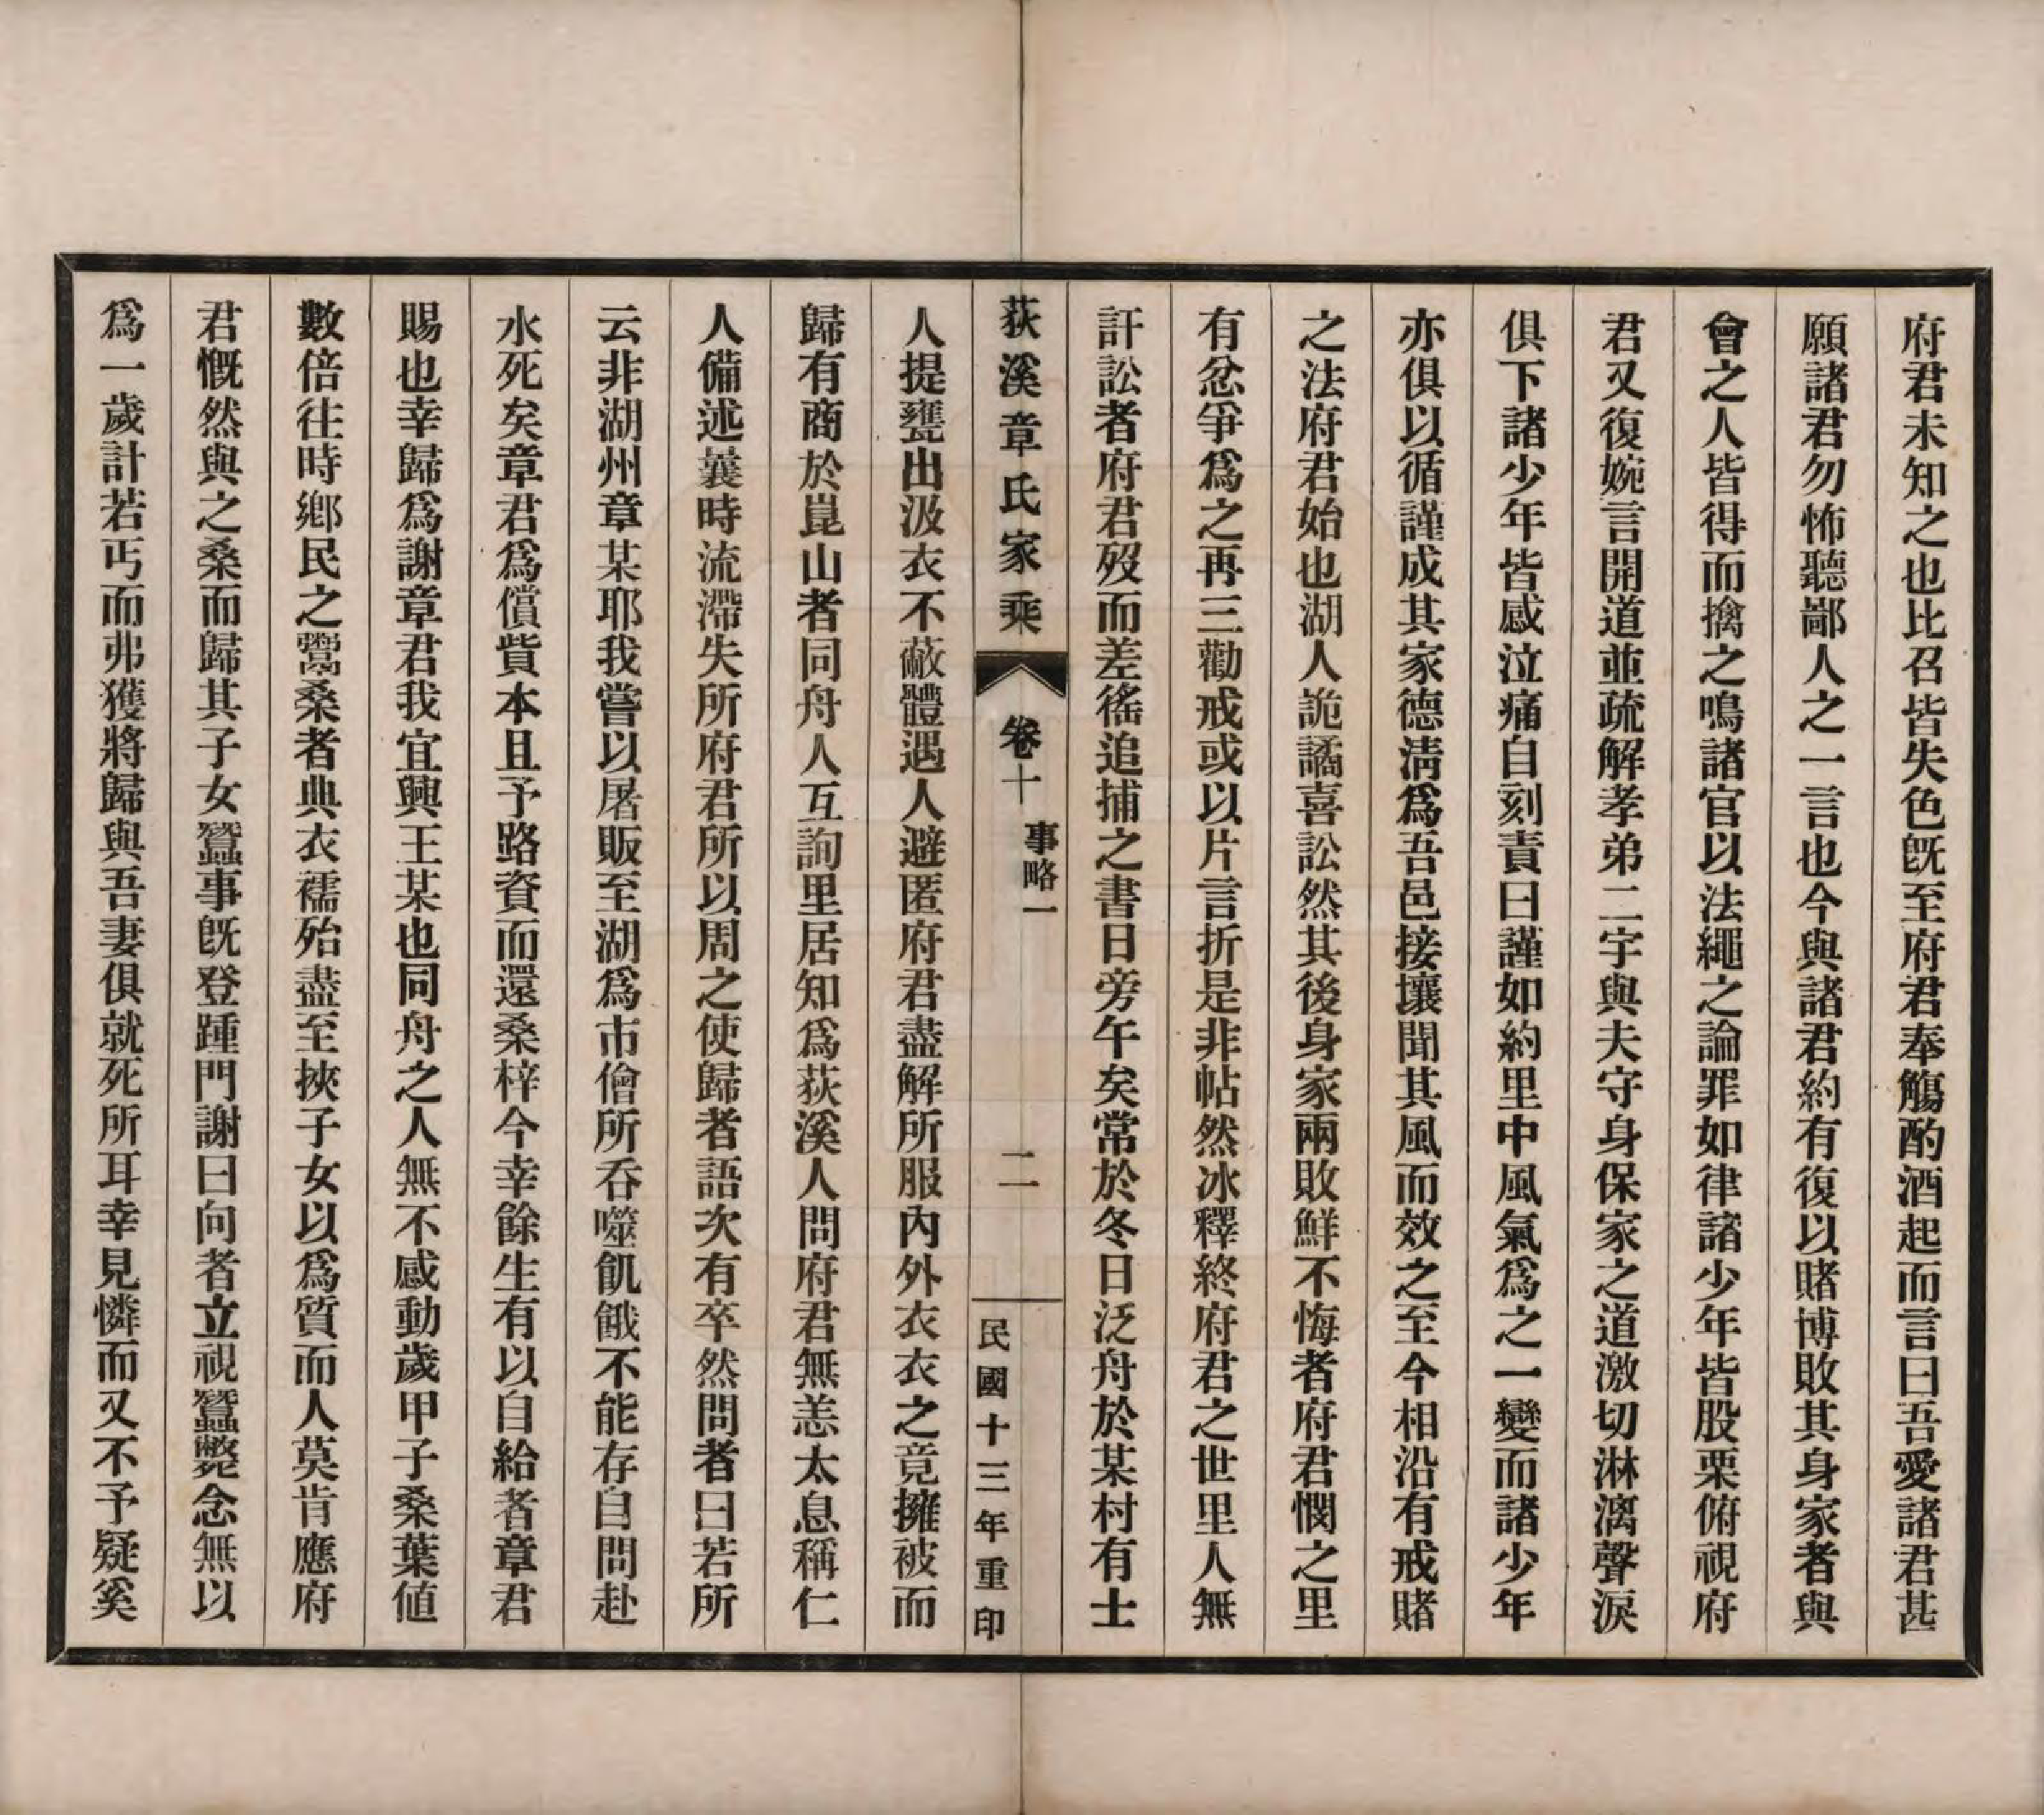 府君未知之也比召皆失色旣至府君奉觴酌酒起而言曰吾愛諸君甚
願諸君勿怖聽鄙人之一言也今與諸君約有復以賭博敗其身家者與
會之人皆得而擒之鳴諸官以法繩之論罪如律諸少年皆股栗俯視府
君又復婉言開道並疏解孝弟二字與夫守身保家之道激切淋漓聲淚
俱下諸少年皆感泣痛自刻責曰謹如約里中風氣爲之一變而諸少年
亦俱以循謹成其家德淸爲吾邑接壤聞其風而效之至今相沿有戒賭
之法府君始也湖人詭譎喜訟然其後身家兩敗鮮不悔者府君憫之里
有忿爭爲之再三勸戒或以片言折是非帖然冰釋終府君之世里人無
訐訟者府君歿而差徭追捕之書日旁午矣常於冬日泛舟於某村有士
荻溪章氏家乘
卷十
事略一
二
民國十三年重印
人提甕出汲衣不蔽體遇人避匿府君盡解所服內外衣衣之竟擁被而
歸有商於崑山者同舟人互詢里居知爲荻溪人問府君無恙太息稱仁
人備述曩時流滯失所府君所以周之使歸者語次有卒然問者曰若所
云非湖州章某耶我嘗以屠販至湖爲市儈所呑噬飢餓不能存自問赴
水死矣章君爲償貲本且予路資而還桑梓今幸餘生有以自給者章君
賜也幸歸爲謝章君我宜興王某也同舟之人無不感動歲甲子桑葉値
數倍往時鄕民之鬻桑者典衣襦殆盡至挾子女以爲質而人莫肯應府
君慨然與之桑而歸其子女蠶事旣登踵門謝曰向者立視蠶斃念無以
爲一歲計若丐而弗獲將歸與吾妻俱就死所耳幸見憐而又不予疑奚